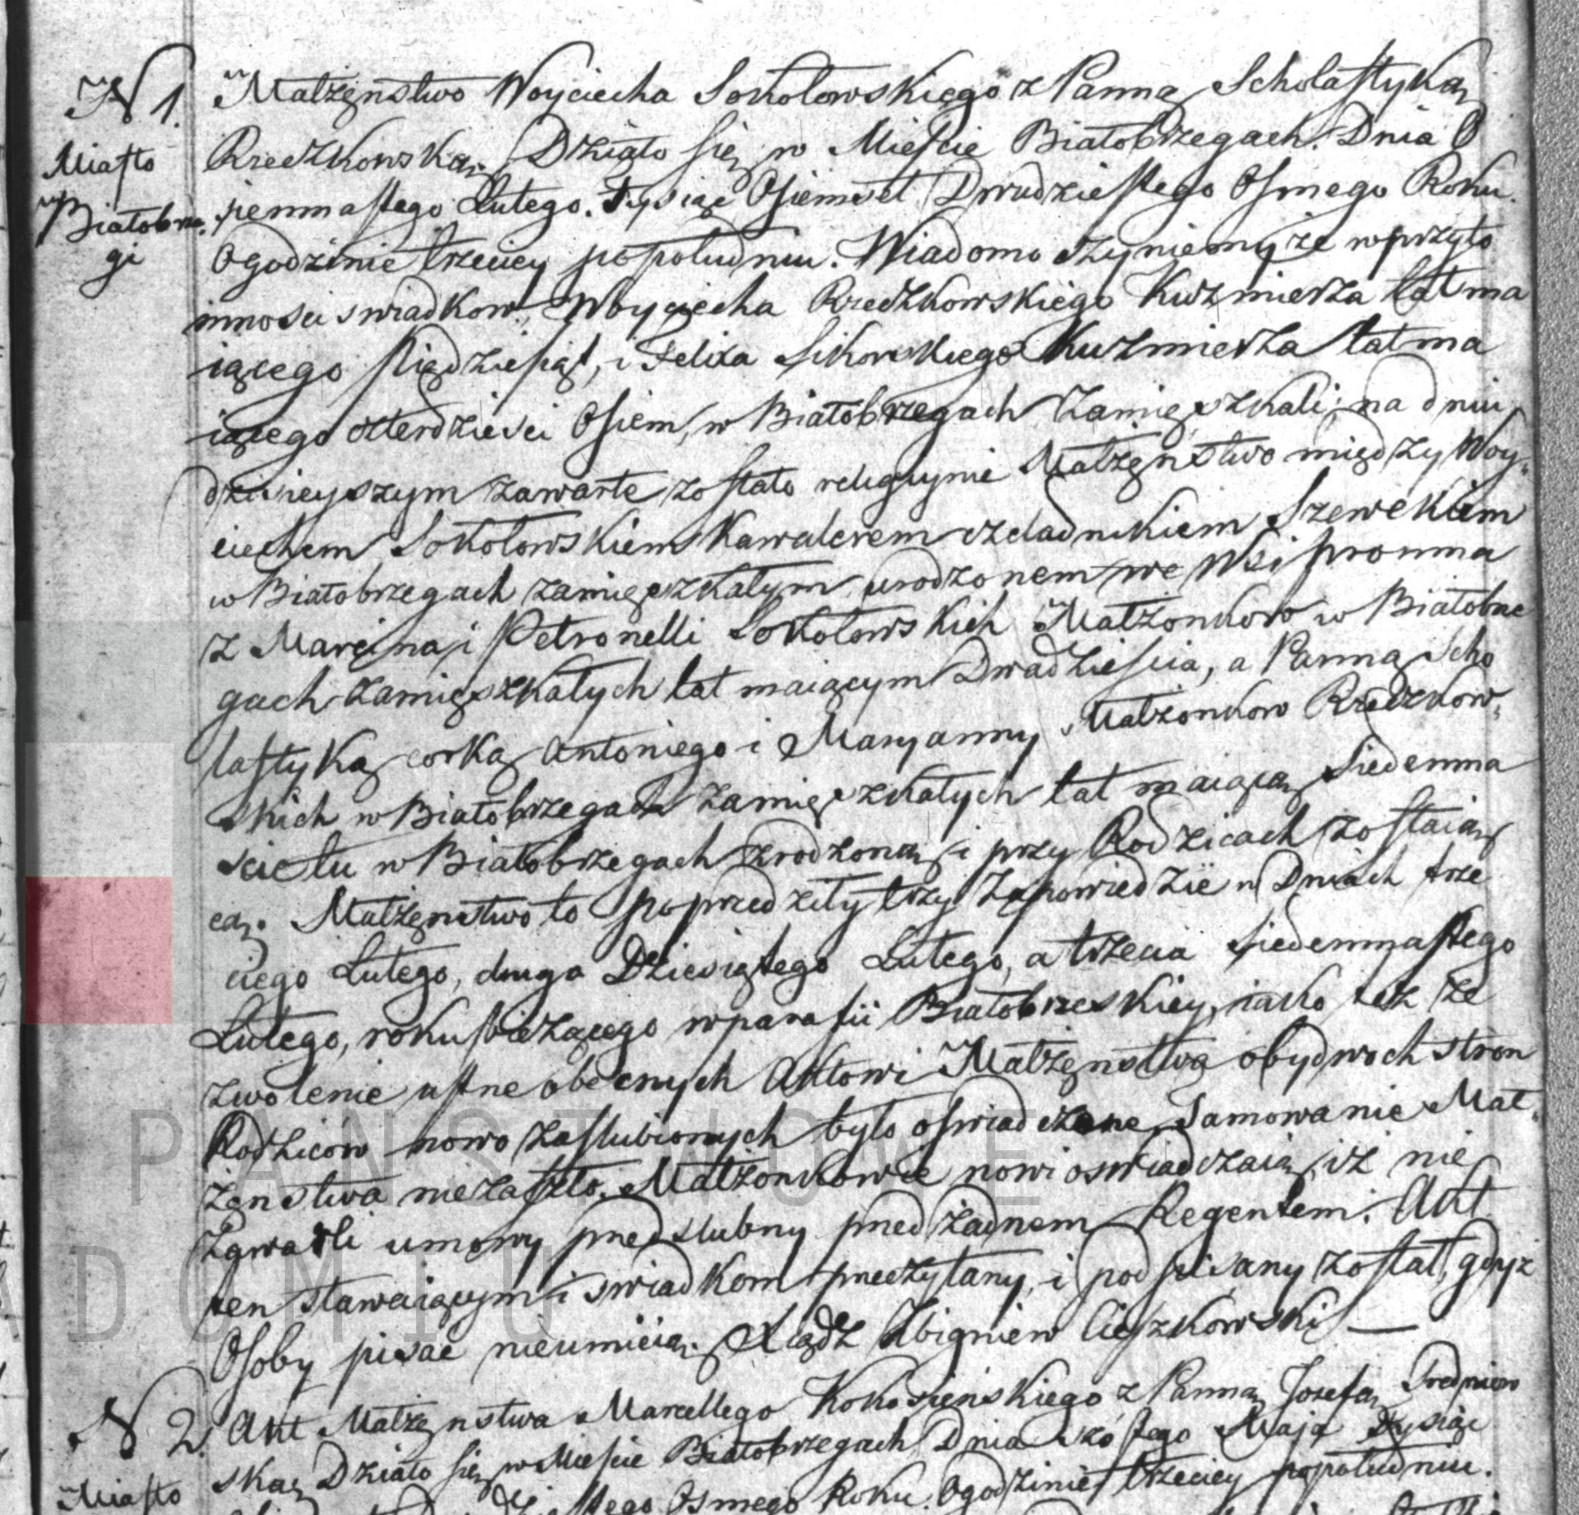 N 1.
Miasto
Białobrze,
gi
Małżeństwo Woyciecha Sokołowskiego z Panną Scholastyką
Rzeczkowską, Działo się w Mieście Białobrzegach. Dnia O
siemnastego Lutego. Tysiąc Osiemset Dwudziestego Osmego Roku.
Ogodzinie trzeciey popołudniu. Wiadomo czyniemy że wprzyto
mnosci swiadkow Woyciecha Rzeczkowskiego Kuzmierza lat ma
iącego Pięćdziesiąt, i Felixa Sikorskiego Kuzmierza lat ma
iącego czterdziesci Osiem, w Białobrzegach Zamięszkali; na dniu
dzisieyszym zawarte zostało religiynie Małżeństwo między Woy,
ciechem Sokołowskiem Kawalerem czeladnikiem Szewckiem
w Białobrzegach zamięszkałym urodzonem we Wsi Promna
z Marcina i Petronelli Sokołowskich Małżonkow w Białobrze
gach zamięszkałych lat maiącym Dwadzieścia, a Panną Scho
lastyką corką Antoniego i Maryanny Małżonkow Rzeczkow,
skich w Białobrzegach Zamięszkałych lat maiącą Siedemna
scietu w Białobrzegach zrodzoną i przy Rodzicach zostaią
cą. Małżeństwo to poprzedziły trzy Zapowiedzie w Dniach trze
ciego Lutego, druga Dziesiątego Lutego, a trzecia Siedemnastego
Lutego, roku bieżącego w parafii Białobrzeskiey, iako też ze
zwolenie ustne obecnych Aktowi Małżeństwa obydwoch stron
Rodzicow nowo zaslubionych było oswiadczone, Tamowanie Mał,
żenstwa niezaszło. Małżonkowie nowi oswiadczaią, iż nie
Zawarli umowy przedslubny przed żadnem Regentem. Akt
ten stawaiącym i swiadkom przeczytany, i podpisany został, gdyż
Osoby pisać nieumieią. Xiądz Zbigniew Cieszkowski —
N 2.
Miasto
Akt Małżeństwa Marcellego Kokosieńskiego z Panną Jozefą Tredniow
ską Działo się w Mieście Białobrzegach Dnia szóstego Maja Tysiąc
Osmego Roku. Ogodzinie trzeciey popołudniu.